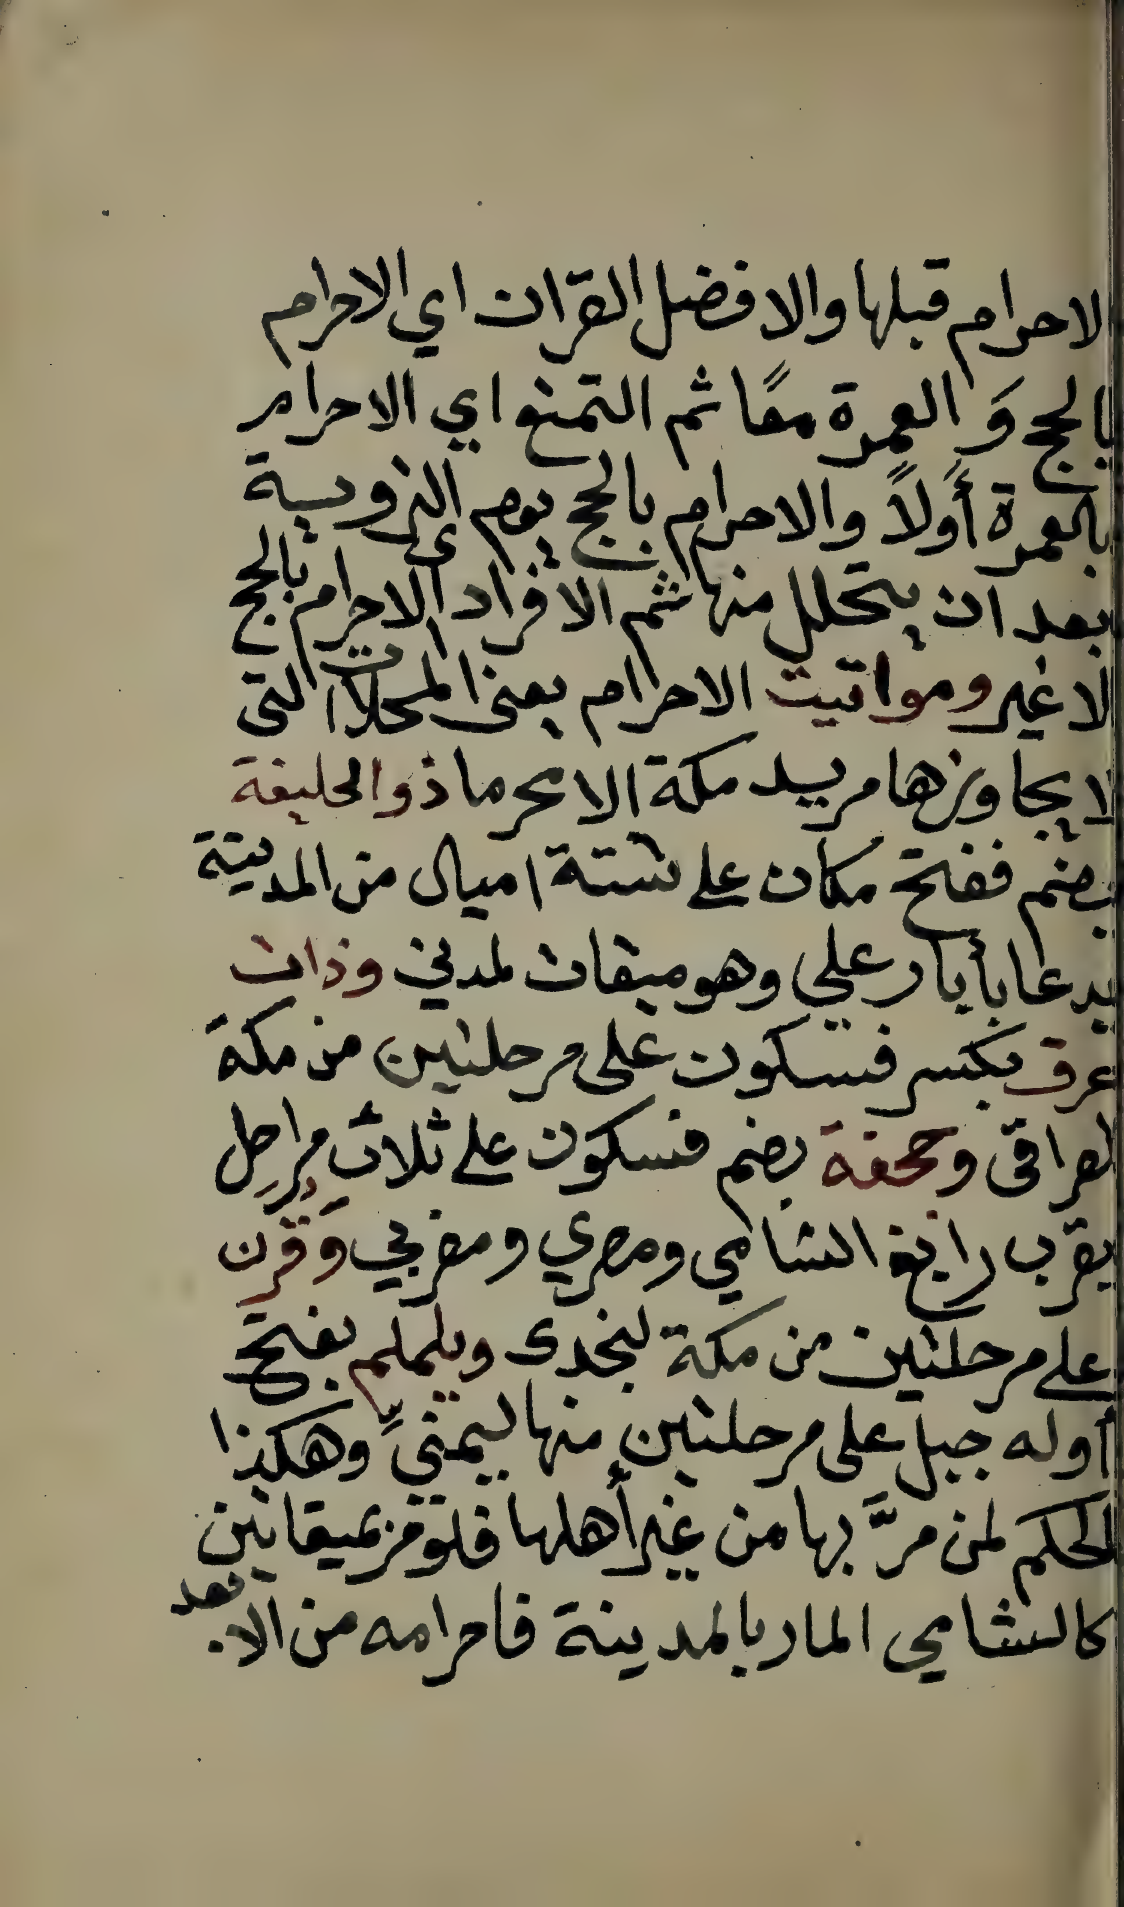 الاحرام قبلها والافضل القرَان اي الاحرام
بالحج وَ العمرة معًا ثم التمتع اي الاحرام
بالعمرة أَولاً والاحرام بالحج يوم التروية
بعد ان يتحلل منها ثم الافراد الاحرام بالحج
لا غير ومواقيت الاحرام بمعنى المحلات التى
لا يجاوزها مريد مكة الا محرما ذوا لحليفة
بضم ففتح مكان على ستة اميال من المدينة
يدعا بأبار علي وهو ميقات لمدني وذات
عرق بكسر فسكون على مرحلتين من مكة
لعراقى وجحفة بضم فسكون على ثلاث مراحِل
بقرب رابغ الشامي ومصري ومغربي وَقرن
على مرحلتين من مكة لنجدى ويلملم بفتح
أوله جبل على مرحلتين منها ليمنىٍّ وهكذا
الحكم لمن مرَّ بها من غير أهلها فلو مر بميقاتين
كالشامي المار بالمدينة فاحرامه من الابعد